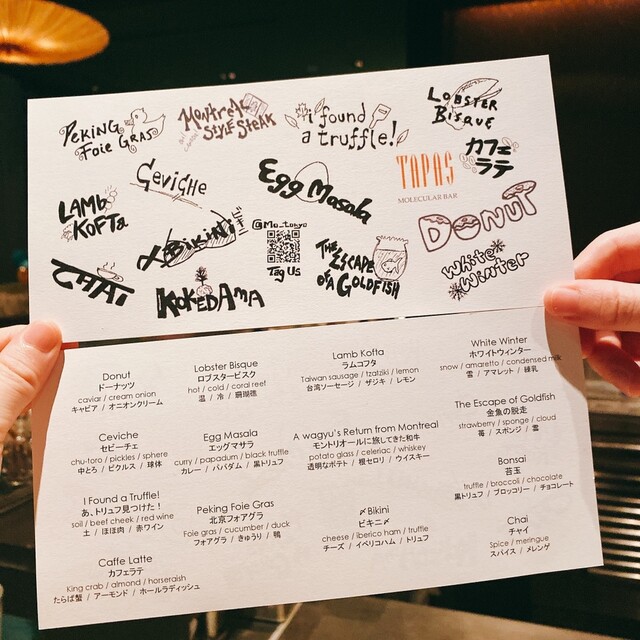 PEKING
FOIE GRAS
MONTREAL
STYLE STEAK
i found
a truffle!
LOBSTER
BISQUE
カフェ
ラテ
TAPAS
MOLECULAR BAR
CEVICHE
Egg Masala
LAMB
KOFTA
〆BIKINI
DONUT
@Mo_tokyo
Tag Us
THE ESCAPE
OF A GOLDFISH
White
Winter
CHAI
KOKEDAMA
Donut
ドーナッツ
caviar / cream onion
キャビア / オニオンクリーム
Lobster Bisque
ロブスタービスク
hot / cold / coral reef
温 / 冷 / 珊瑚礁
Lamb Kofta
ラムコフタ
Taiwan sausage / tzatziki / lemon
台湾ソーセージ / ザジキ / レモン
White Winter
ホワイトウィンター
snow / amaretto / condensed milk
雪 / アマレット / 練乳
Ceviche
セビーチェ
chu-toro / pickles / sphere
中とろ / ピクルス / 球体
Egg Masala
エッグマサラ
curry / papadum / black truffle
カレー / パパダム / 黒トリュフ
A wagyu's Return from Montreal
モントリオールに旅してきた和牛
potato glass / celeriac / whiskey
透明なポテト / 根セロリ / ウイスキー
The Escape of Goldfish
金魚の脱走
strawberry / sponge / cloud
苺 / スポンジ / 雲
I Found a Truffle!
あ、トリュフ見つけた！
soil / beef cheek / red wine
土 / ほほ肉 / 赤ワイン
Peking Foie Gras
北京フォアグラ
Foie gras / cucumber / duck
フォアグラ / きゅうり / 鴨
〆Bikini
ビキニ〆
cheese / iberico ham / truffle
チーズ / イベリコハム / トリュフ
Bonsai
苔玉
truffle / broccoli / chocolate
黒トリュフ / ブロッコリー / チョコレート
Caffe Latte
カフェラテ
King crab / almond / horseraish
たらば蟹 / アーモンド / ホールラディッシュ
Chai
チャイ
Spice / meringue
スパイス / メレンゲ